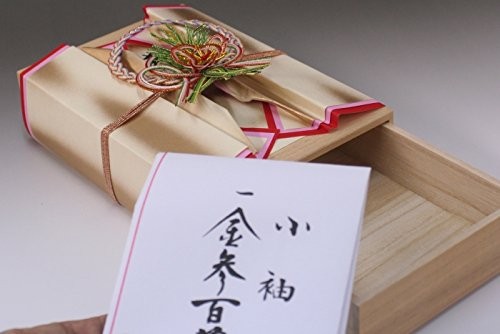 小袖
一金参百